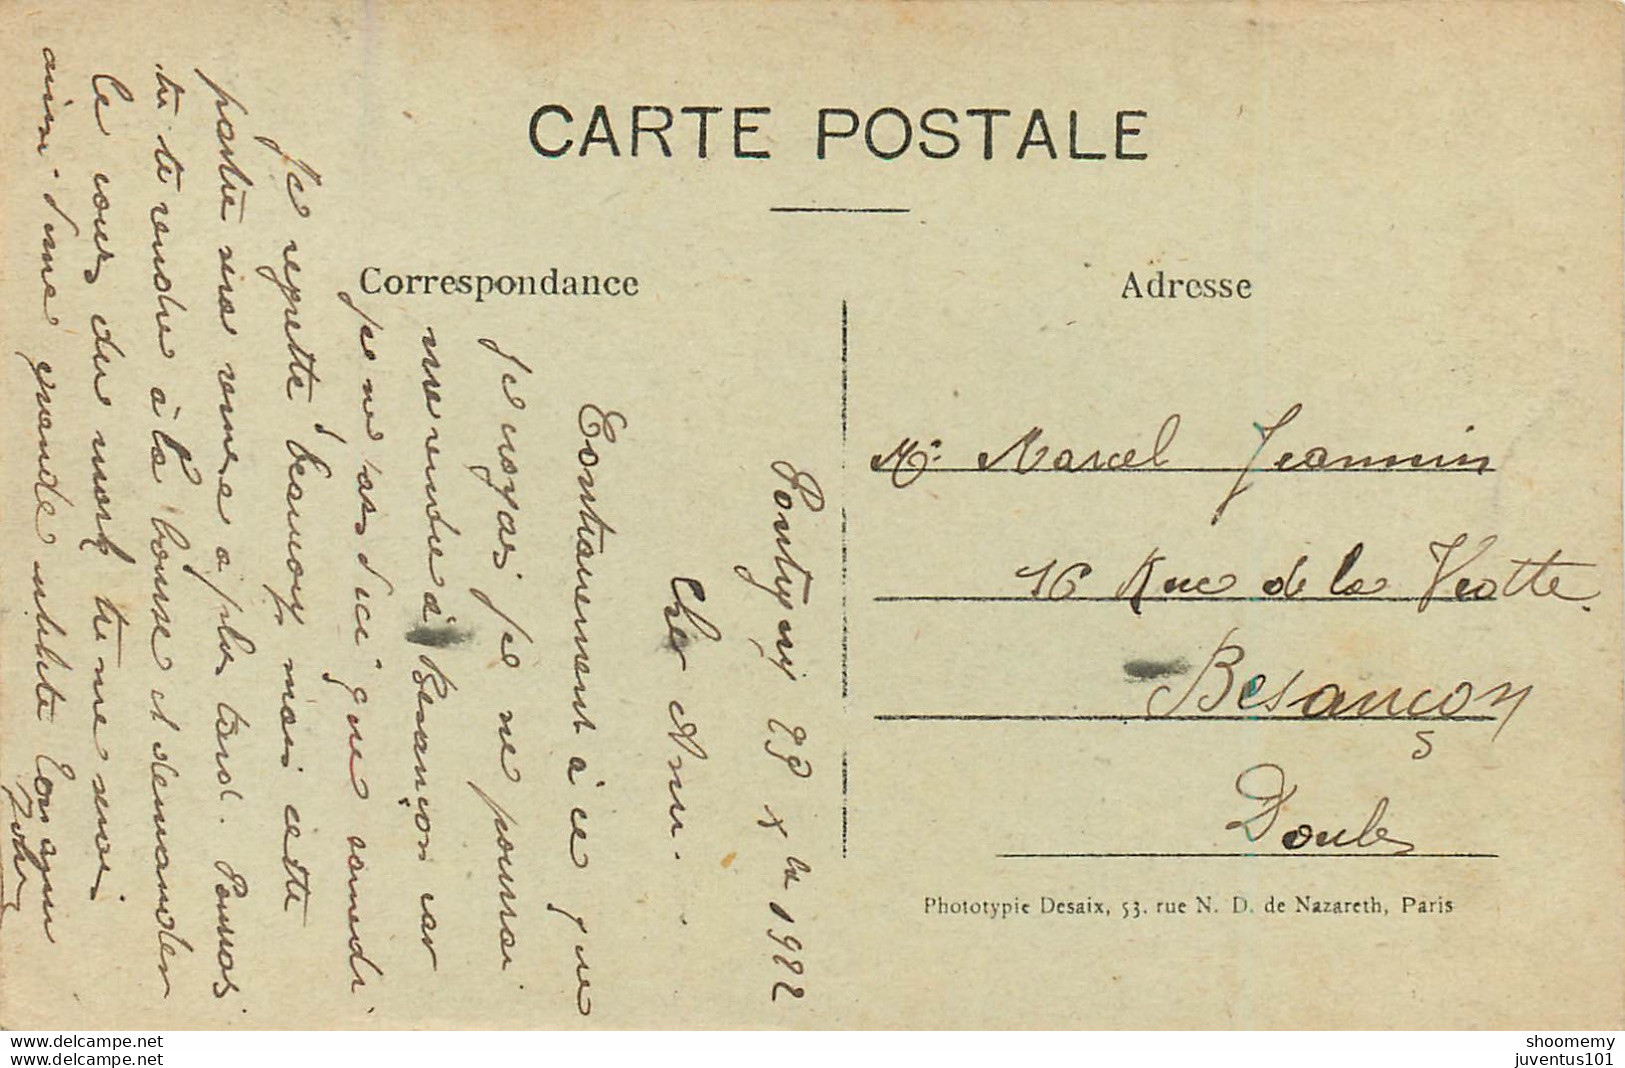 CARTE POSTALE
Correspondance
Adresse
Pontigny 23 Xbre 1922
Cher Ami.
Contrairement à ce que
je croyais je ne pourrai
me rendre à Besançon car
je ne vais d'ici que samedi
Je regrette beaucoup mais cette
partie sera remise à plus tard. Pourrais
tu te rendre à la bourse et demander
le cours du mark tu me serais
ainsi d'une grande utilité Ton ami
Mr Marcel Jeannin
16 Rue de la Viotte.
Besançon
Doubs
Phototypie Desaix, 53. rue N. D. de Nazareth, Paris
www.delcampe.net
www.delcampe.net
shoomemy
juventus101